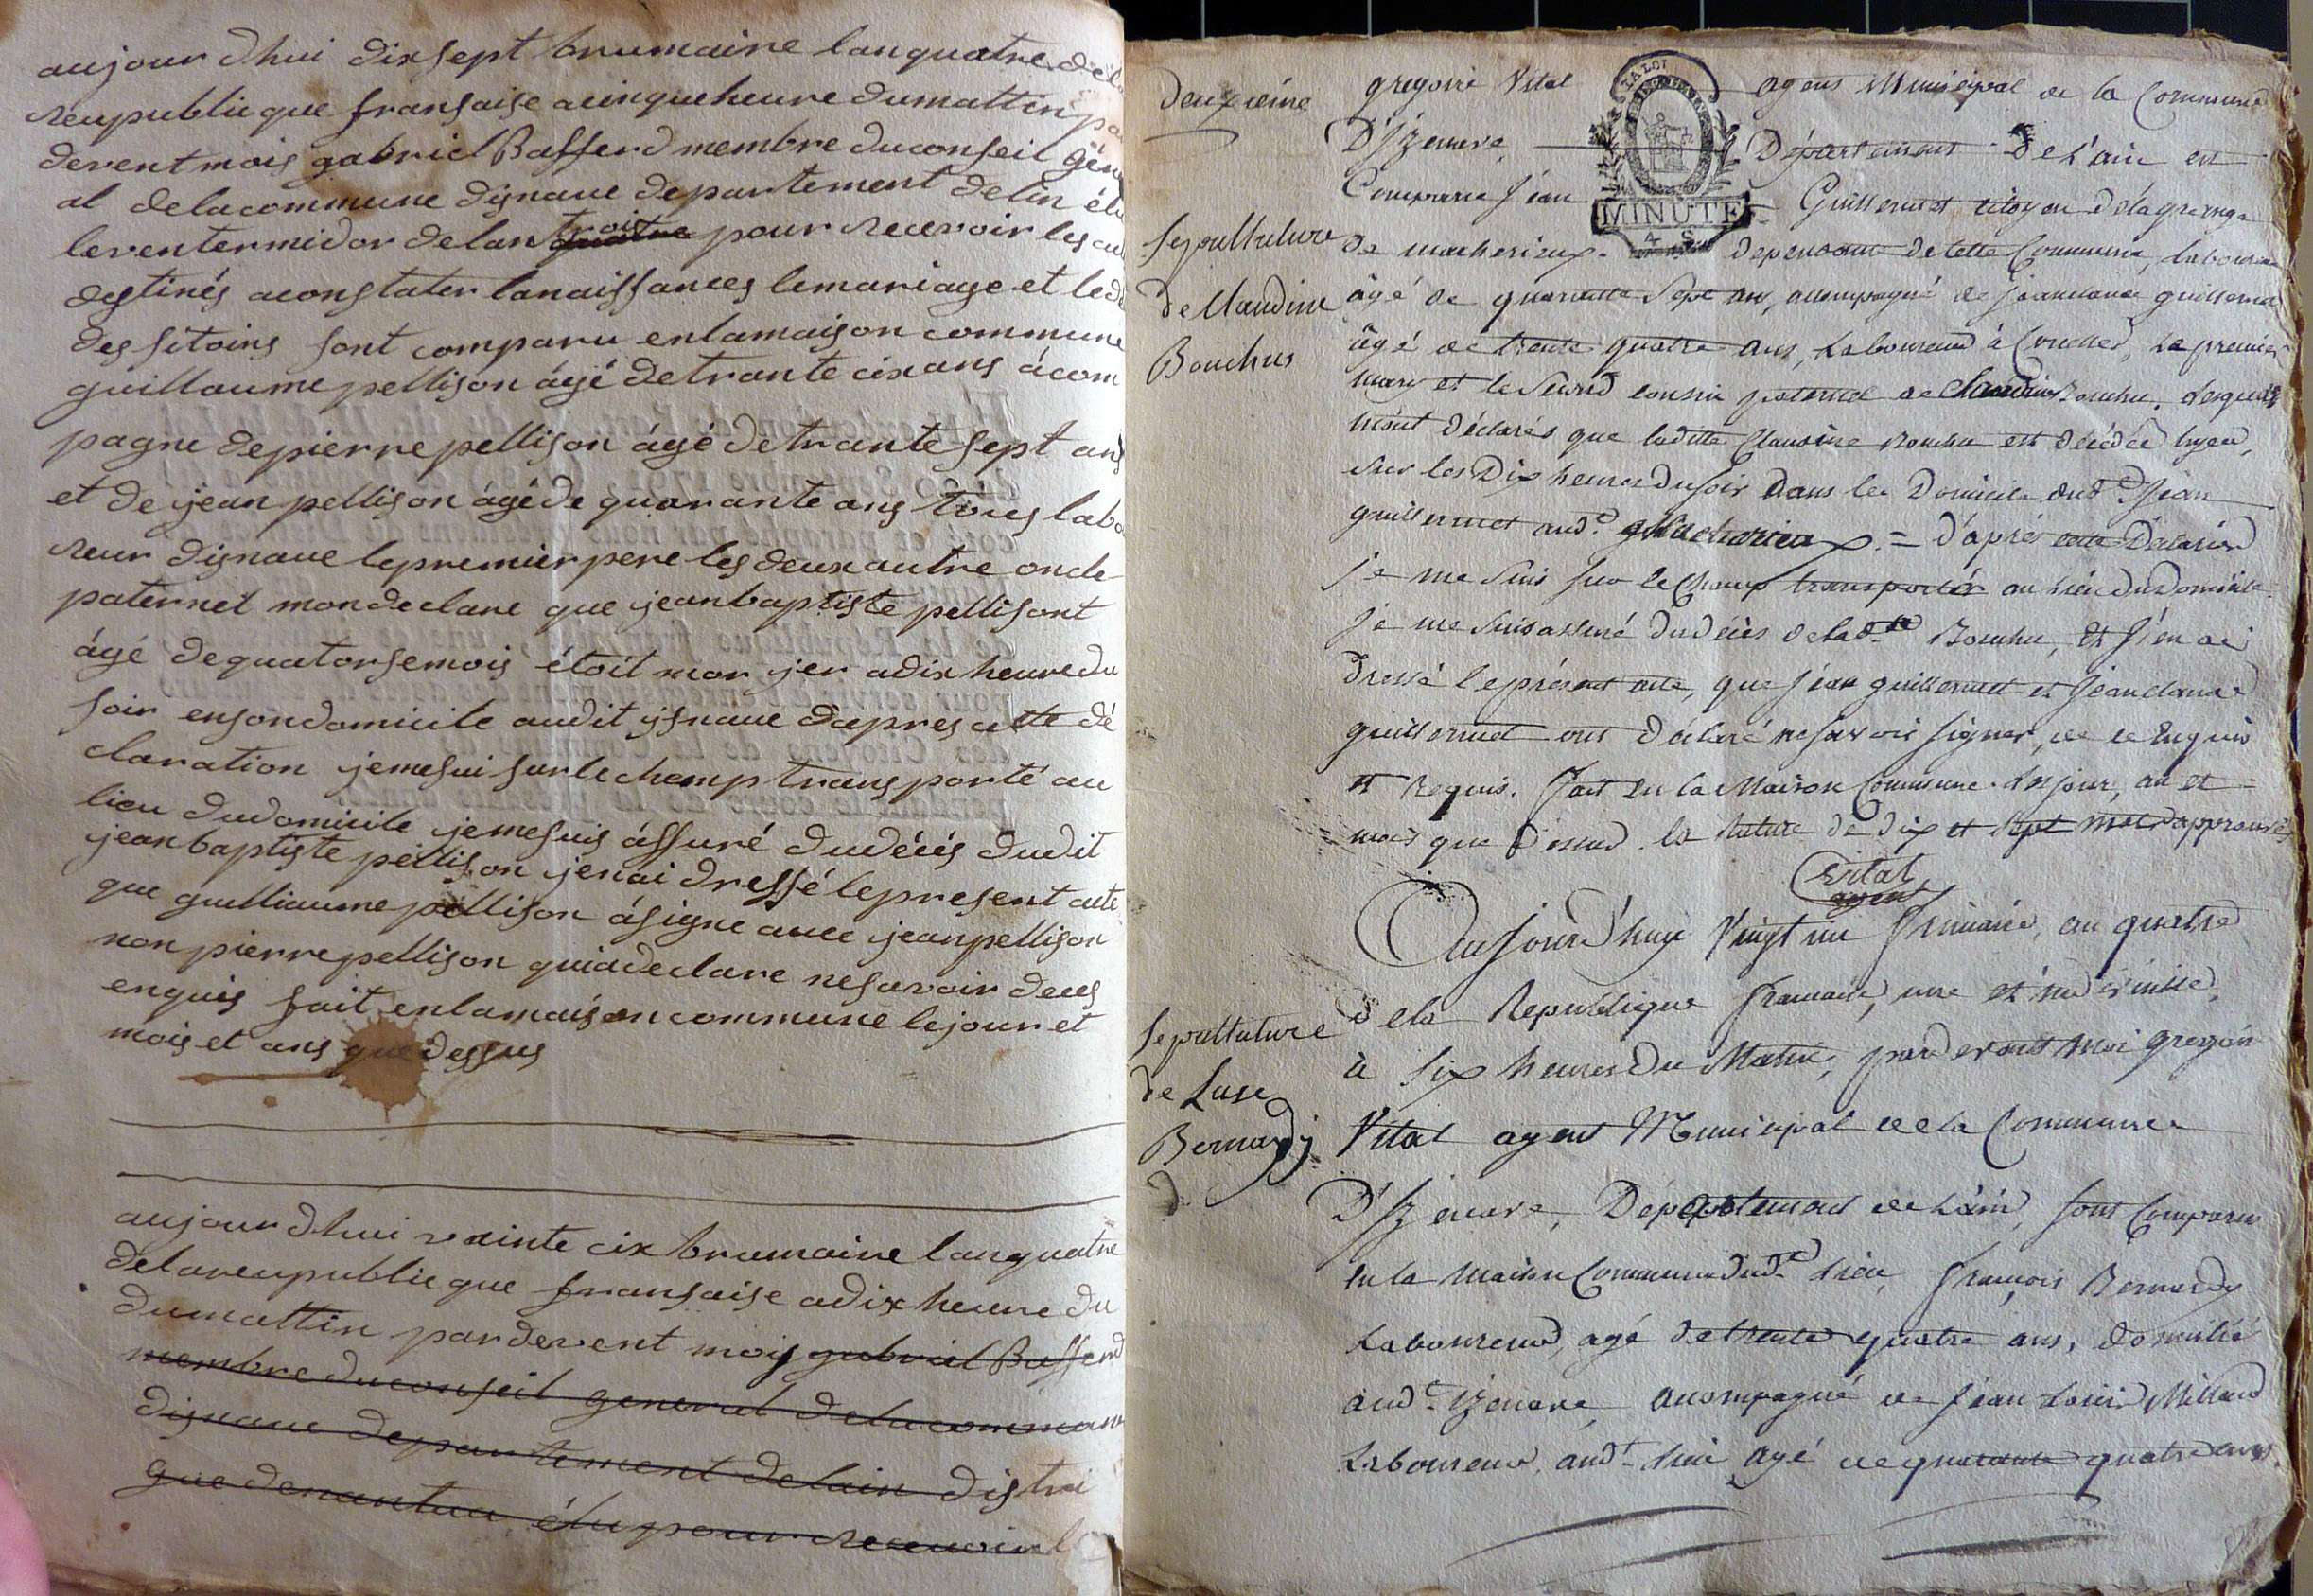 aujour dhui dixsept brumaire lanquatre de l
reupublicque fransaise acinqueheure dumattin pa
devent mois gabriel Bafferd membre duconseil géné
al delacommune disnave departement delin élu
leventermidor delan trois quatre pour recevoir les
destinés aconstater lanaissances lemariage et led
des sitoins sont comparu enlamaison commune
guillaume pellison âgé detrante cix ans â com
pagne depierre pellison âgé detrante sept ans
et de jean pellison âgéde quarante ans tous labo
reur disnave lepremier pere les deux autre oncle
paternel mondeclare que jeanbaptiste pellisont
âgé dequatorsemois étoit mor jer adix heure du
soir ensondomicile audit isnave dapres cette dé
claration jemesui surlechemp transporté au
lieu dudomicile jemesuis âssuré dudécés dudit
jeanbaptiste pellison jenai dressé lepresent acte
que guilliaume pellison âsigne avec jeanpellison
non pierre pellison quiadeclare nesavoir deces
enquis fait enlamaison commune lejour et
mois et ans que dessus
aujour dhui vainte cix brumaire lanquatre
delareupublicque fransaise adix heure du
dumattin pardevent mois gabriel Bafferd
membre duconseil general delacommune
disnave departement delain distri
que denantua élu pour recevoir l
deuxième
gregoire Vital agent Municipal de la Commune
D'Izenave, Département De l'ain est
Comparu Jean Guillermet citoyen delagrange
LA LOI
MINUTE
4 S
Sepultulure
de Claudine
Bouchus
de macherieux. dependant de cette Commune, laboureur
âgé de quarante sept ans, accompagné de jeanclaude guillermet
âgé de trente quatre ans, Laboureur à Corcelles, Le premier
mary et le second cousin paternel de Claudine Bouchu. Lesquels
m'ont déclarés que laditte Claudine Bouchu est décédée hyer,
sur les Dix heures du soir dans le Domicile dud. Jean
guillermet aud. Macherieux. = d'après cette Déclaration
je me suis sur le champ transporter au Lieu du Domicile.
je me suis assuré dudécès delad.te Bouchu, Et j'en ai
Dressé le présent acte, que jéan guillermet et jeanclaude
guillermet ont déclaré ne savoir signer, de ce Enquis
et Requis. fait en la Maison Commune. les jour, an et =
mois que dessus. la rature de dix et sept mots approuvés
Vital
agent
Aujourd'huy Vingt un frimaire, an quatre
dela Republique francaise, une et indivisible,
Sepultature
de Luse
Bernardy
à six heures du Matin, pardevant Moi gregoire
Vital agent Municipal de la Commune
D'Izenave, Departement de L'ain, sont Comparus
en la maison Commune dud. Lieu, francois Bernardy
Laboureur, agé de trente quatre ans, domicilié
aud. Izenave, acompagné de jéan Louis Milland
Laboureur, aud. Lieu agé de quarante quatre ans